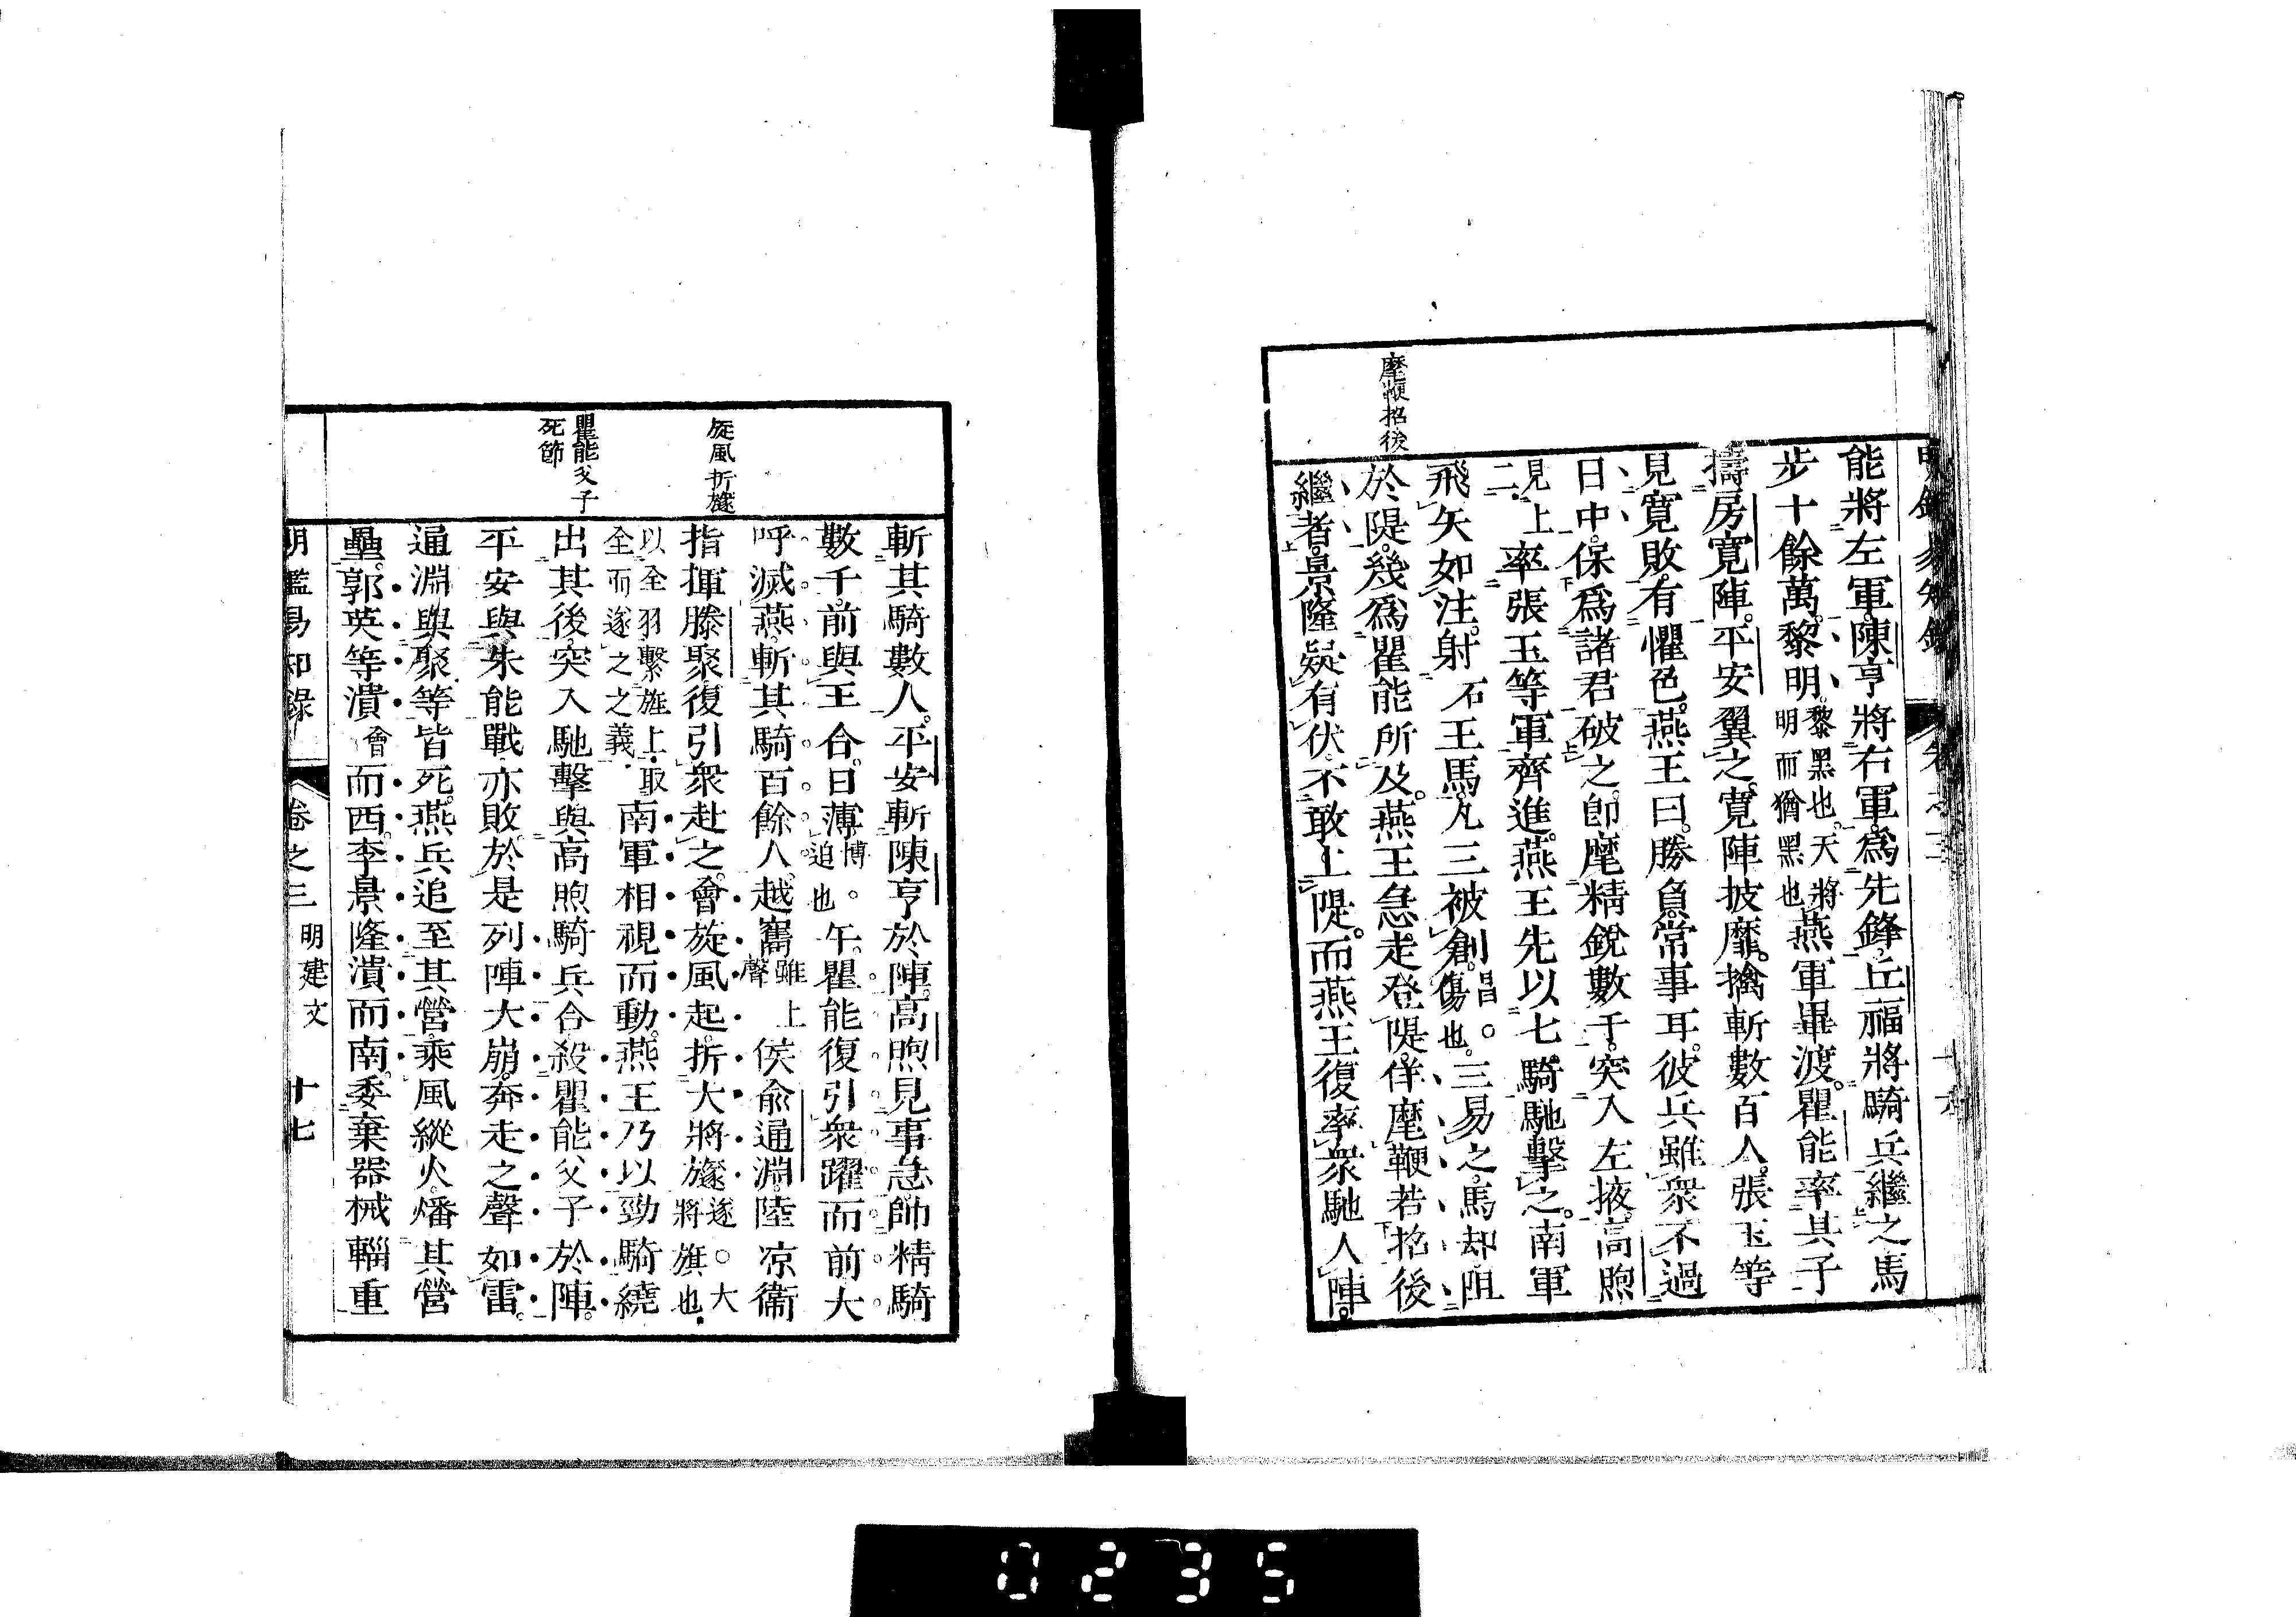 明鑑易知錄 卷之三 十六
能將左軍。陳亨將右軍。為先鋒。丘福將騎兵繼之。馬
步十餘萬。黎明。黎黑也。天將明而猶黑也燕軍畢渡。瞿能率其子
擣房寬陣。平安翼之。寬陣披靡。擒斬數百人。張玉等
見寬敗。有懼色。燕王曰。勝負常事耳。彼兵雖衆。不過
日中。保為諸君破之。即麾精銳數千。突入左掖。高煦
見上二。率張玉等軍齊進。燕王先以七騎馳擊之。南軍
飛矢如注。射石王馬。凡三被創。昌。傷也。三易之。馬却。阻
於隄。幾為瞿能所及。燕王急走登隄。佯麾鞭若招後
繼者。景隆疑有伏。不敢上隄。而燕王復率衆馳入陣。
麾鞭招後
斬其騎數人。平安斬陳亨於陣。高煦見事急。帥精騎
數千。前與王合。日薄博。迫也。午。瞿能復引衆躍而前。大
呼滅燕。斬其騎百餘人。越巂雖上聲侯俞通淵。陸凉衞
指揮滕聚。復引衆赴之。會旋風起。折大將旞遂。大將旗也。
以全羽繫旌上。取全而遂之之義。南軍相視而動。燕王乃以勁騎繞
出其後。突入馳擊。與高煦騎兵合。殺瞿能父子於陣。
平安與朱能戰亦敗。於是列陣大崩。奔走之聲如雷。
通淵與聚等皆死。燕兵追至其營。乘風縱火。燔其營
壘。郭英等潰會而西。李景隆潰而南。委棄器械輜重
旋風折旞
瞿能父子
死節
明鑑易知錄 卷之三 明建文 十七
0235